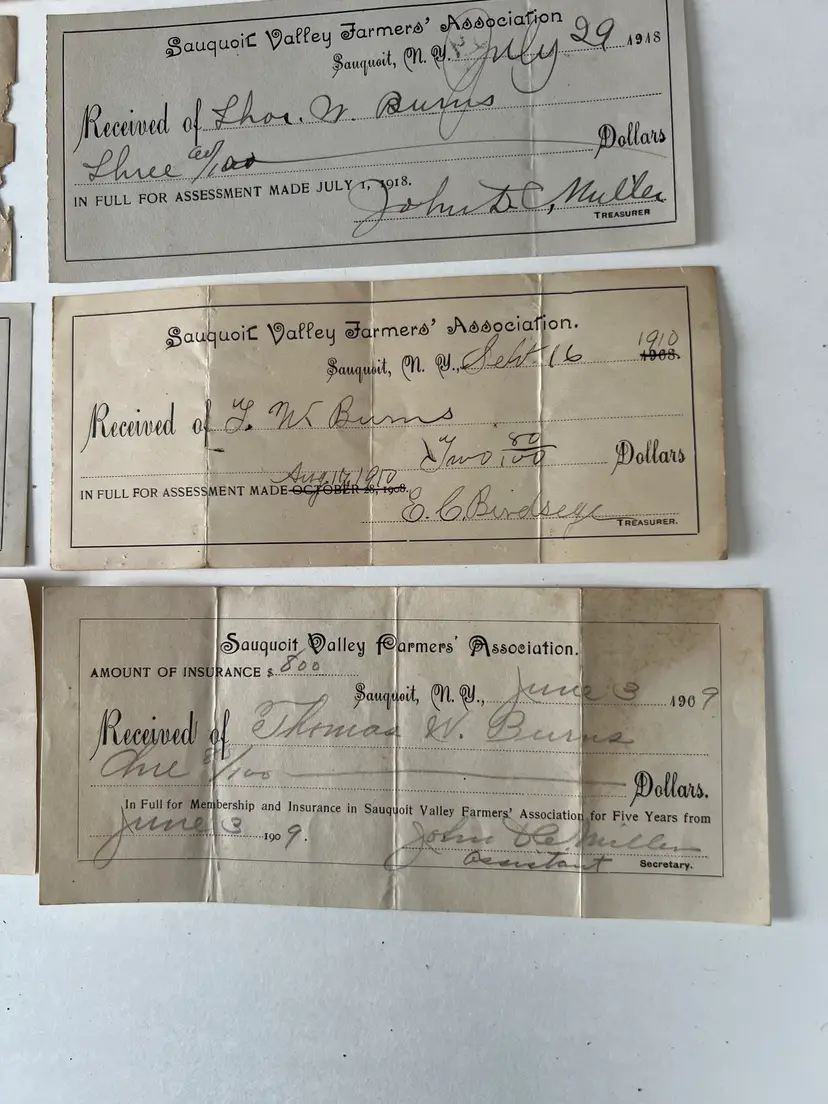 Sauquoit Valley Farmers' Association
Sauquoit, N. Y. July 29 1918
Received of Thos. W. Burns
Three 00/100 Dollars
IN FULL FOR ASSESSMENT MADE JULY 1, 1918.
John D C, Miller
TREASURER
Sauquoit Valley Farmers' Association.
1910
Sauquoit, N. Y., Sept. 16 1908.
Received of T. W. Burns
Two 80/100 Dollars
Aug 17, 1910
IN FULL FOR ASSESSMENT MADE OCTOBER 28, 1908.
E. C. Birdseye
TREASURER.
Sauquoit Valley Farmers' Association.
AMOUNT OF INSURANCE $ 800
Sauquoit, N. Y., June 3 1909
Received of Thomas W. Burns
One /100 Dollars.
In Full for Membership and Insurance in Sauquoit Valley Farmers' Association for Five Years from
June 3 1909. John D C. Miller
Assistant Secretary.